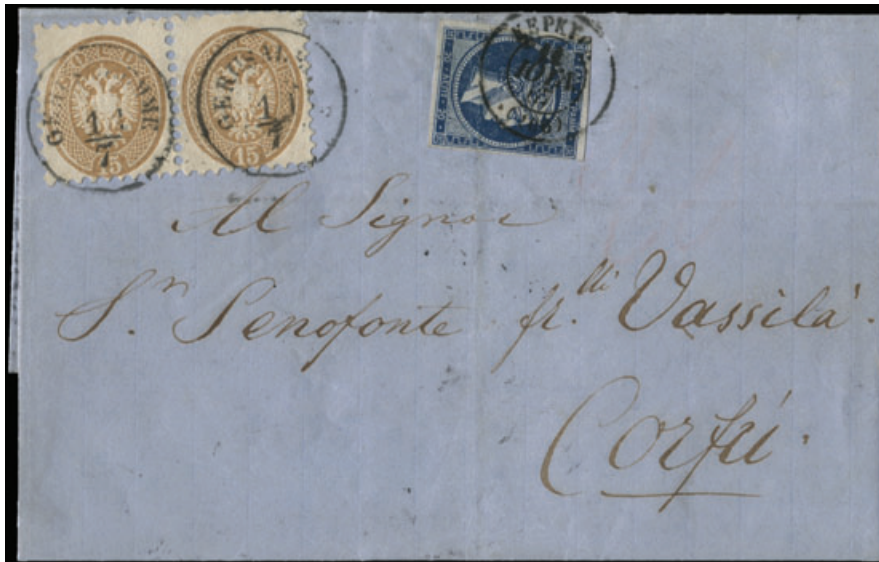 GERUSALEMME
11
7
15
GERUSAL
11
7
15
ΚΕΡΚΥΡΑ
Al Signor
S.ⁿ Senofonte fr.lli Vassilà.
Corfú.